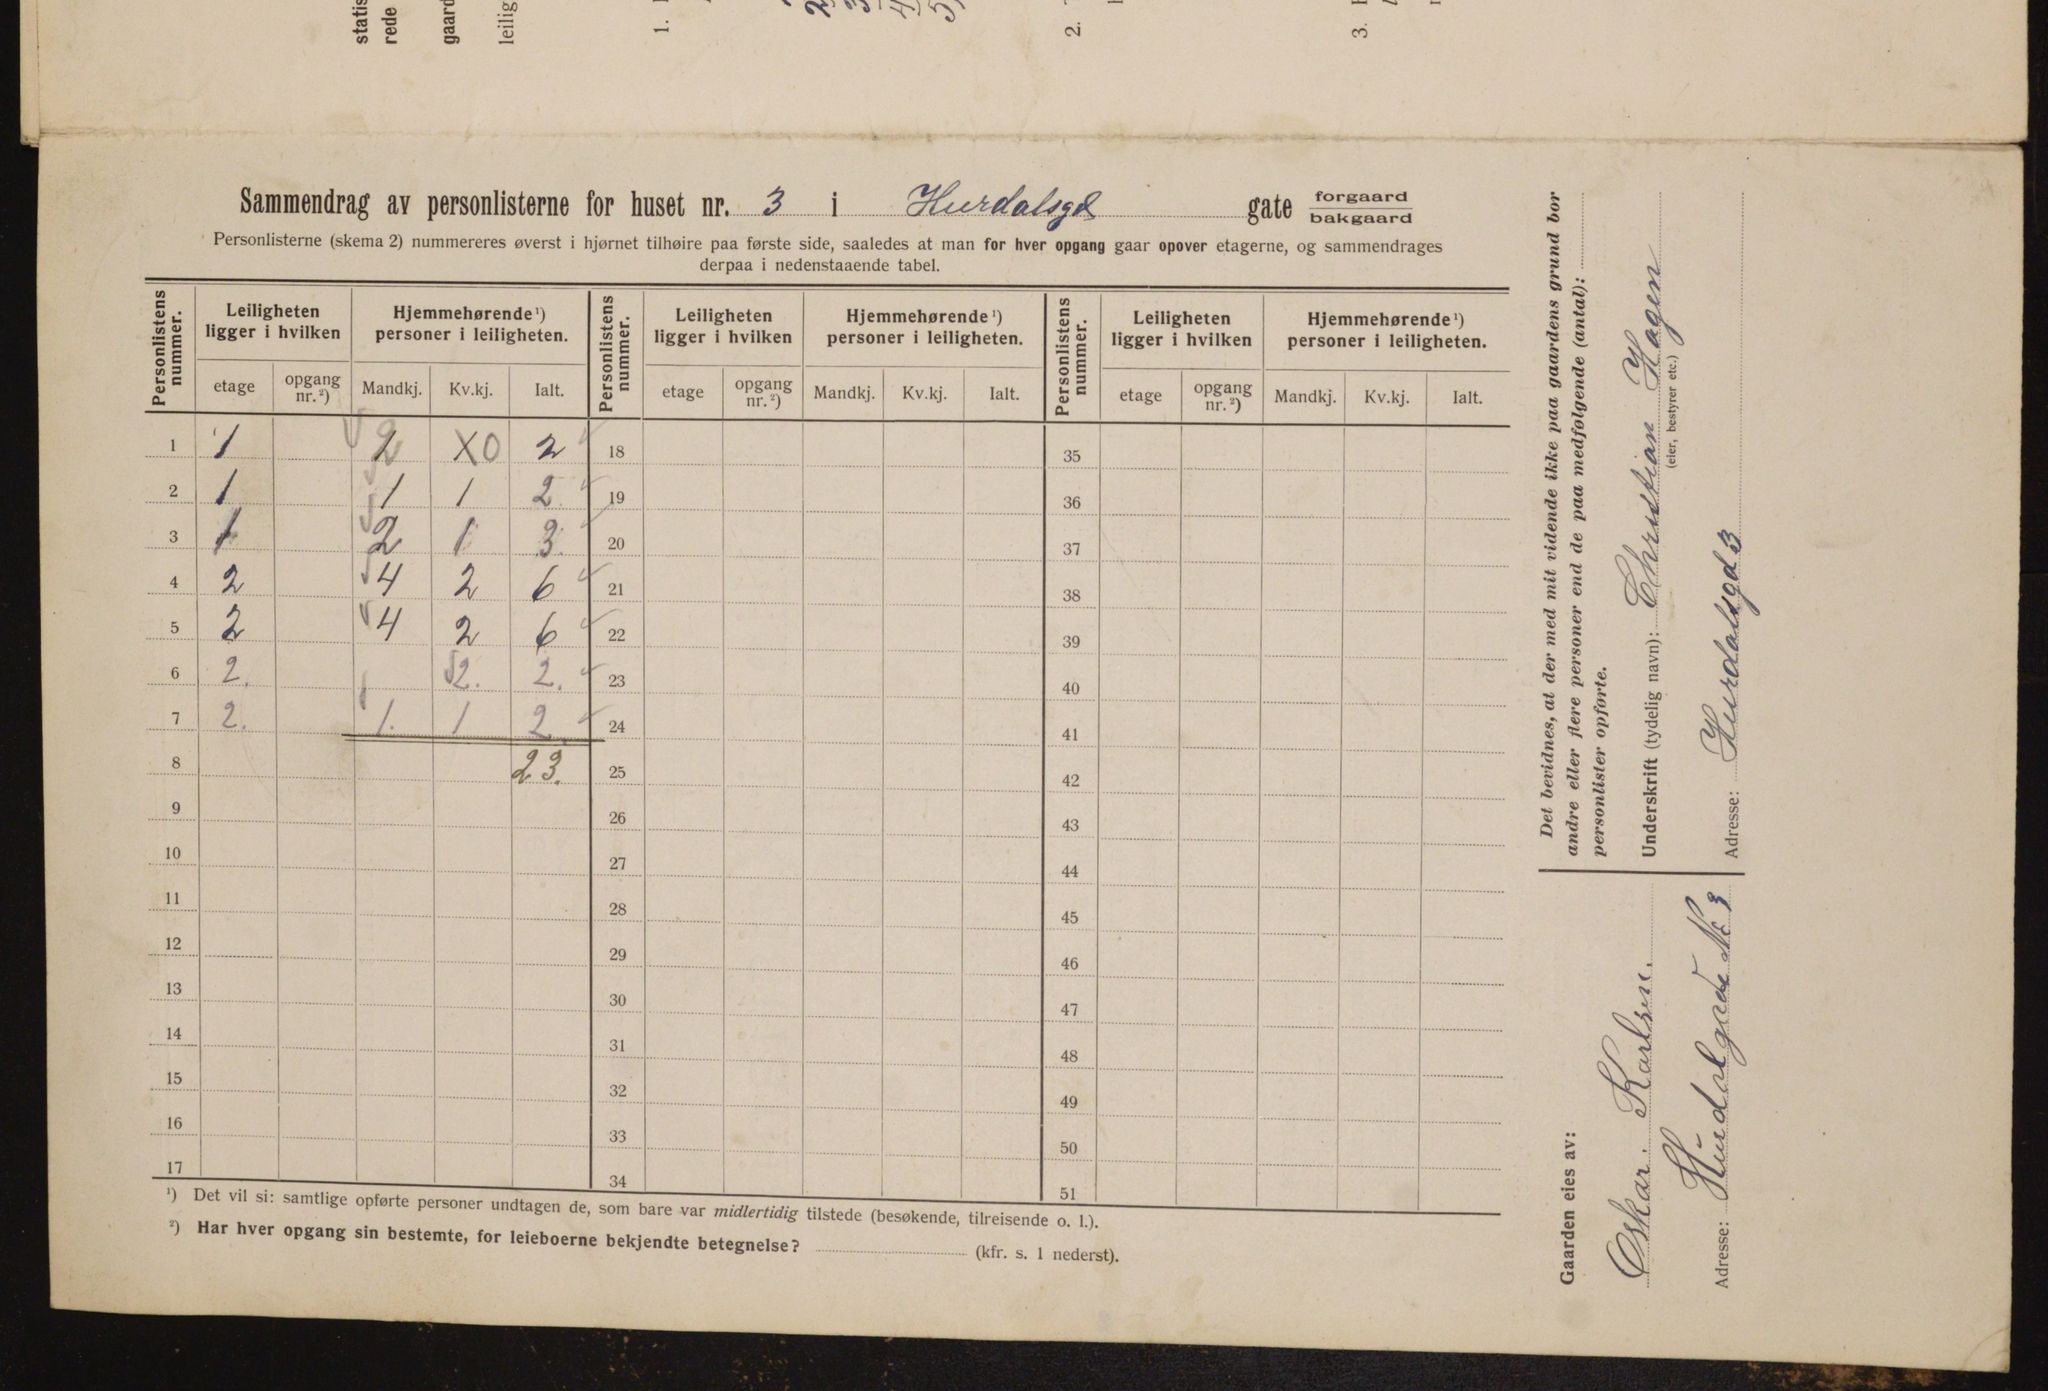 statis
rede
gaard
leilig
1.
2.
3.
Sammendrag av personlisterne for huset nr. 3 i Hurdalsgd gate forgaard
bakgaard
Personlisterne (skema 2) nummereres øverst i hjørnet tilhøire paa første side, saaledes at man for hver opgang gaar opover etagerne, og sammendrages
derpaa i nedenstaaende tabel.
Personlistens nummer. Leiligheten ligger i hvilken Hjemmehørende ¹) personer i leiligheten. Personlistens nummer. Leiligheten ligger i hvilken Hjemmehørende ¹) personer i leiligheten. Personlistens nummer. Leiligheten ligger i hvilken Hjemmehørende ¹) personer i leiligheten.
etage opgang nr. ²) Mandkj. Kv.kj. Ialt. etage opgang nr. ²) Mandkj. Kv.kj. Ialt. etage opgang nr. ²) Mandkj. Kv.kj. Ialt.
1 1 2 X0 2 18 35
2 1 1 1 2. 19 36
3 1 2 1 3. 20 37
4 2 4 2 6 21 38
5 2 4 2 6 22 39
6 2. 2. 2. 23 40
7 2. 1. 1 2. 24 41
8 23. 25 42
9 26 43
10 27 44
11 28 45
12 29 46
13 30 47
14 31 48
15 32 49
16 33 50
17 34 51
¹) Det vil si: samtlige opførte personer undtagen de, som bare var midlertidig tilstede (besøkende, tilreisende o. l.).
²) Har hver opgang sin bestemte, for leieboerne bekjendte betegnelse? (kfr. s. 1 nederst).
Det bevidnes, at der med mit vidende ikke paa gaardens grund bor
andre eller flere personer end de paa medfølgende (antal):
personlister opførte.
Underskrift (tydelig navn): Christian Hagen
(eier, bestyrer etc.)
Adresse: Hurdalsgd 3
Gaarden eies av:
Oskar. Karlsen.
Adresse: Hurdalgade No 3